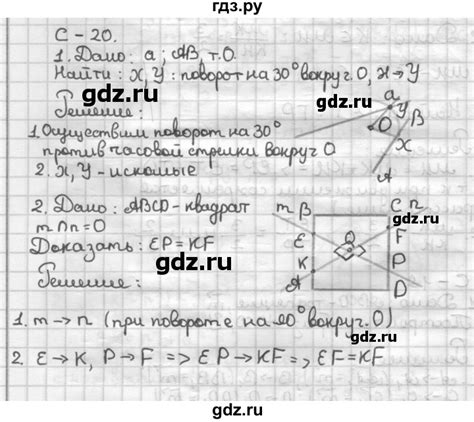 гдз.ру
С - 20.
1. Дано: a; AB, т.O.
Найти: X, Y: поворот на 30° вокруг O, X → Y
Решение:
1. Осуществим поворот на 30°
против часовой стрелки вокруг O
2. X, Y - искомые
a
Y
O
B
X
A
gdz.ru
gdz.ru
2. Дано: ABCD - квадрат
m ∩ n = O
Доказать: EP = KF
Решение:
m B
C n
E
O
F
K
P
A
D
gdz.ru
gdz.ru
gdz.ru
1. m → n (при повороте на 90° вокруг O)
2. E → K, P → F => EP → KF =>, EF = KF
gdz.ru
gdz.ru